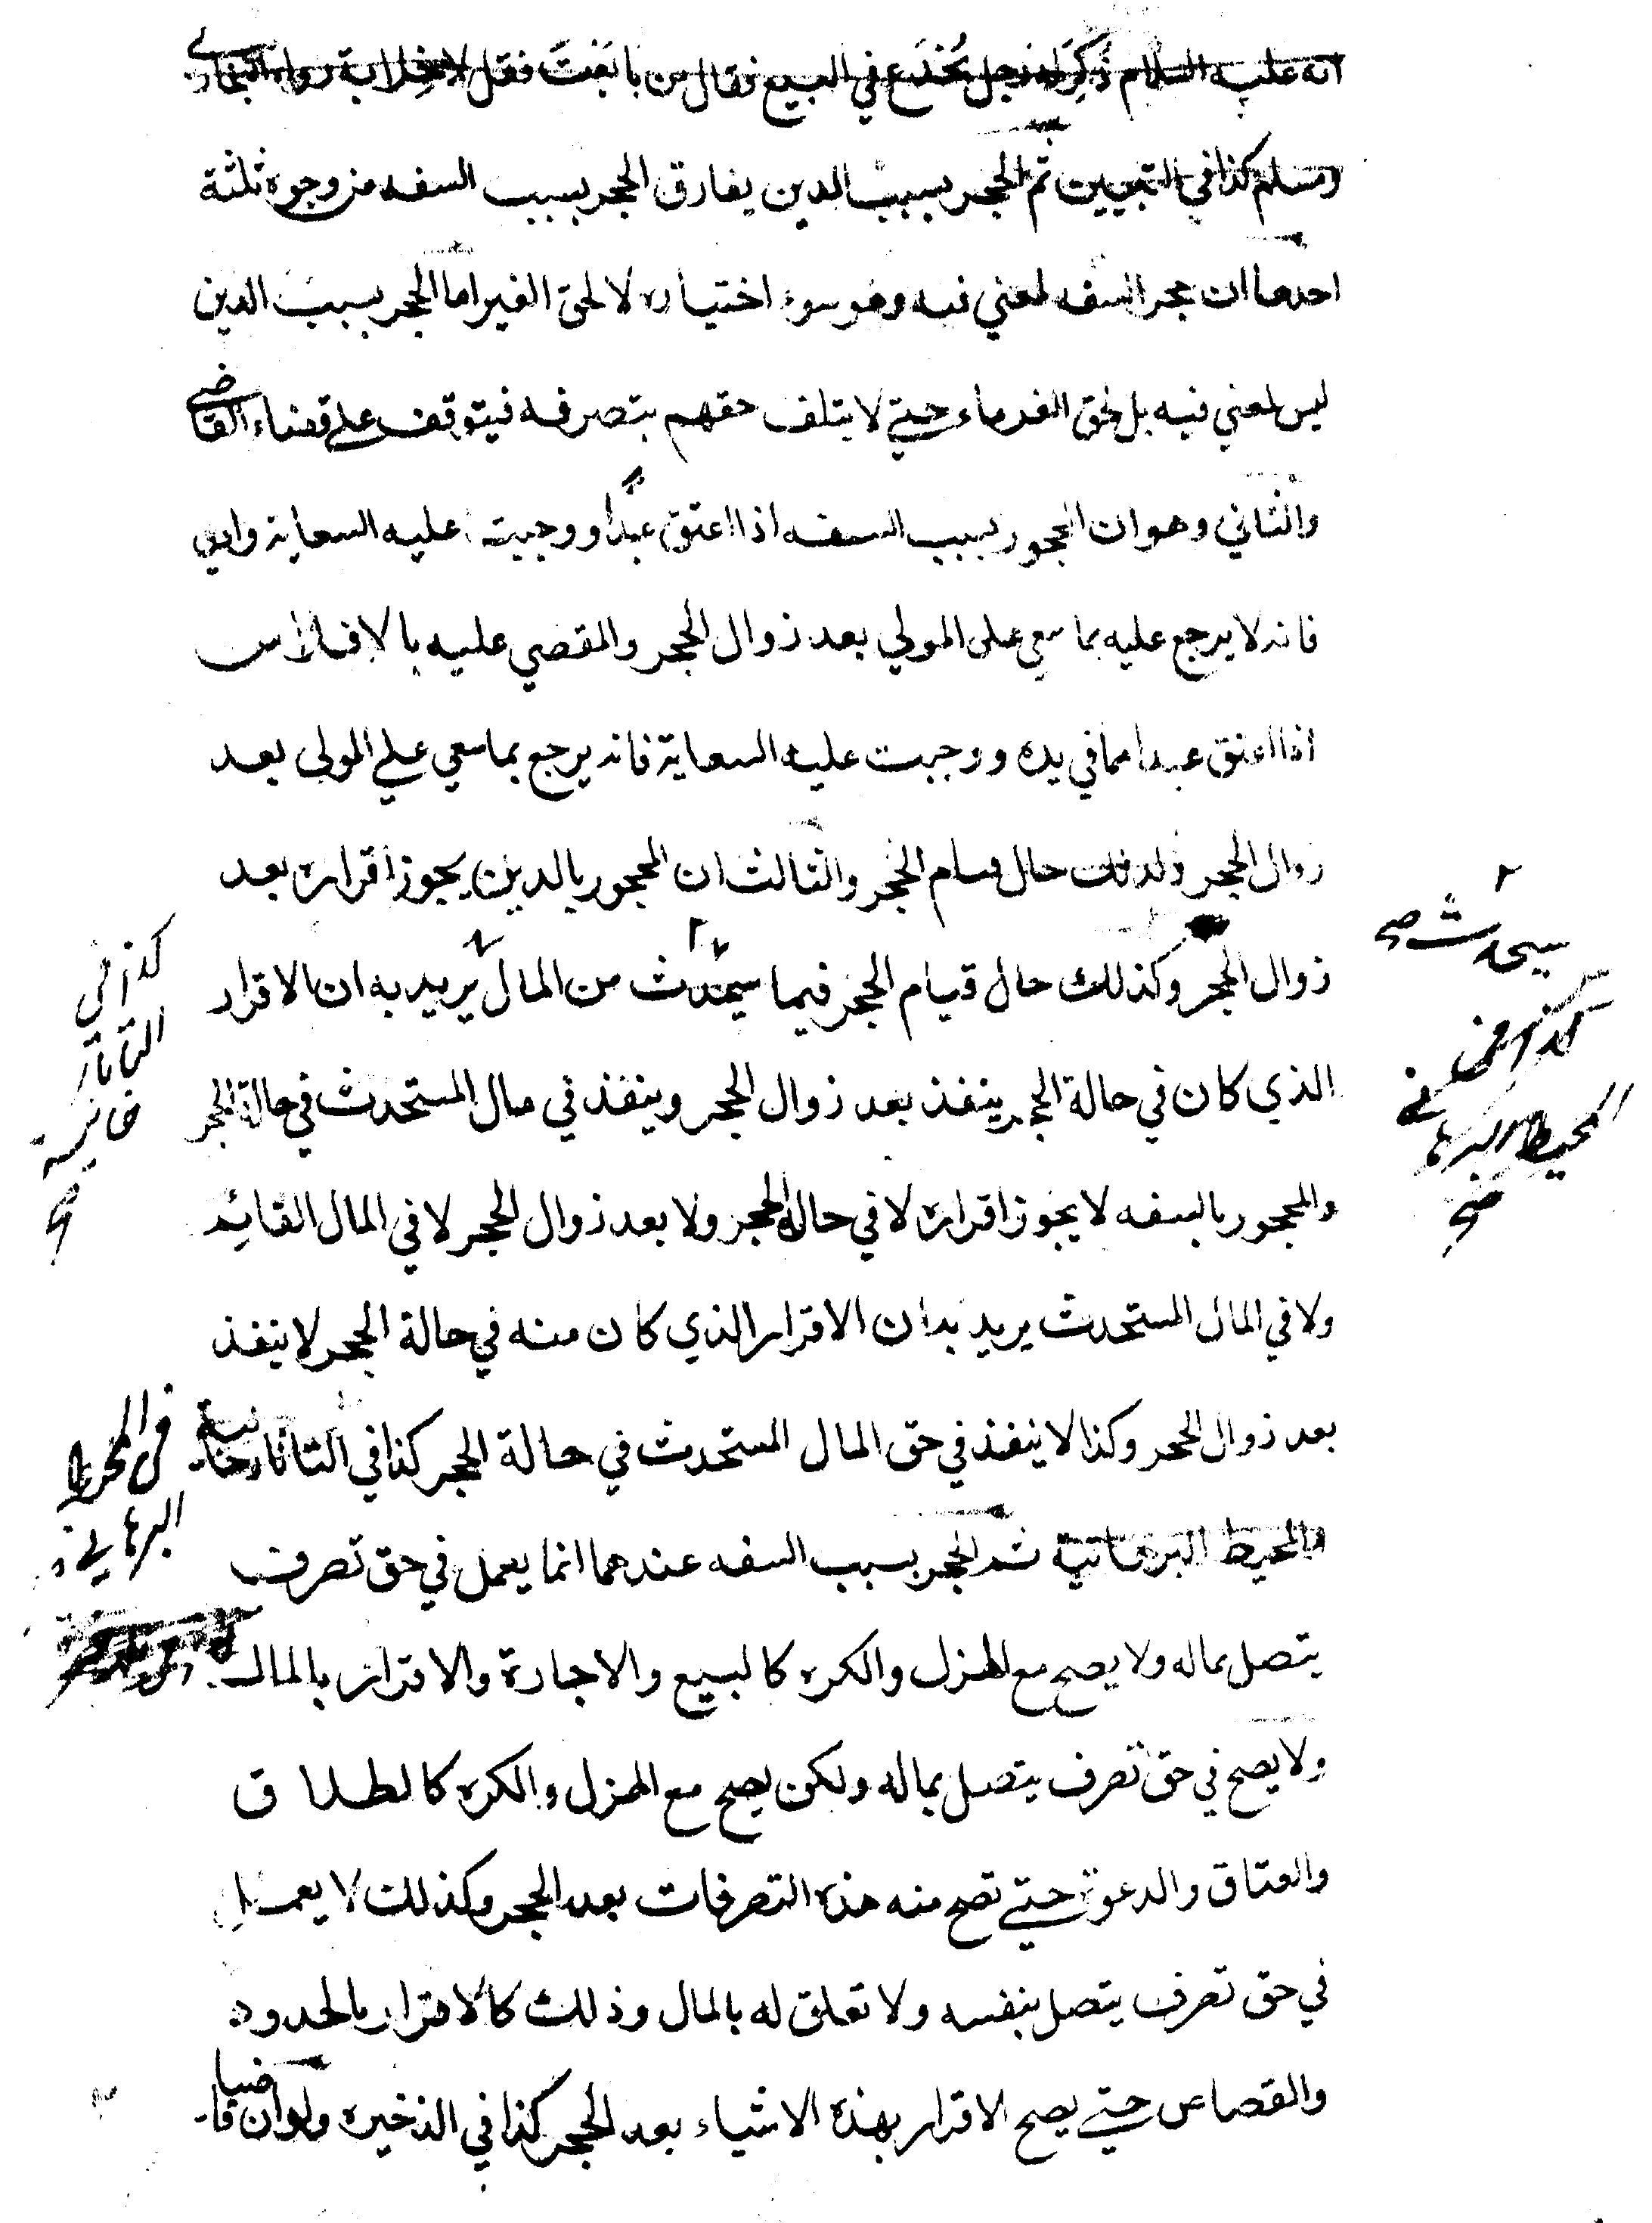 انه عليه السلام ذُكِرَ له رجل يُخْدَع في البيع فقال من بايَعْتَ فقل لا خِلابة رواه البخاري
ومسلم كذا في التبيين ثم الحجر بسبب الدين يفارق الحجر بسبب السفه من وجوه ثلثة
احدها ان حجر السفه لمعني فيه وهو سوء اختياره لا لحق الغير اما الحجر بسبب الدين
ليس لمعني فيه بل لحق الغرماء حتي لا يتلف حقهم بتصرفه فيتوقف علي قضاء القاضي
والثاني وهو ان المحجور بسبب السفه اذا اعتق عبدا ووجبت عليه السعاية وادي
فانه لا يرجع عليه بما سعي علي المولي بعد زوال الحجر والمقضي عليه بالافلاس
اذا اعتق عبدا مما في يده ووجبت عليه السعاية فانه يرجع بما سعي علي المولي بعد
زوال الحجر وكذلك حال قيام الحجر والثالث ان المحجور بالدين يجوز اقراره بعد
زوال الحجر وكذلك حال قيام الحجر فيما سيحدث من المال يريد به ان الاقرار
الذي كان في حالة الحجر ينفذ بعد زوال الحجر وينفذ في مال المستحدث في حالة الحجر
والمحجور بالسفه لا يجوز اقراره لا في حالة الحجر ولا بعد زوال الحجر لا في المال القائم
ولا في المال المستحدث يريد به ان الاقرار الذي كان منه في حالة الحجر لا ينفذ
بعد زوال الحجر وكذا لا ينفذ في حق المال المستحدث في حالة الحجر كذا في التاتارخانية
والمحيط البرهانية ثم الحجر بسبب السفه عندهما انما يعمل في حق تصرف
يتصل بماله ولا يصح مع الهزل والكره كالبيع والاجارة والاقرار بالمال
ولا يصح في حق تصرف يتصل بماله ولكن يصح مع الهزل والكره كالطلاق
والعتاق والدعوة حتي تصح منه هذه التصرفات بعد الحجر وكذلك لا يعمل
في حق تصرف يتصل بنفسه ولا تعلق له بالمال وذلك كالاقرار بالحدود
والقصاص حتي يصح الاقرار بهذه الاشياء بعد الحجر كذا في الذخيره ولو ان قاضيا
سيحدث صح
كذا في
المحيط البرهاني
صح
كذا في
التاتار
خانية
صح
في المحيط
البرهاني